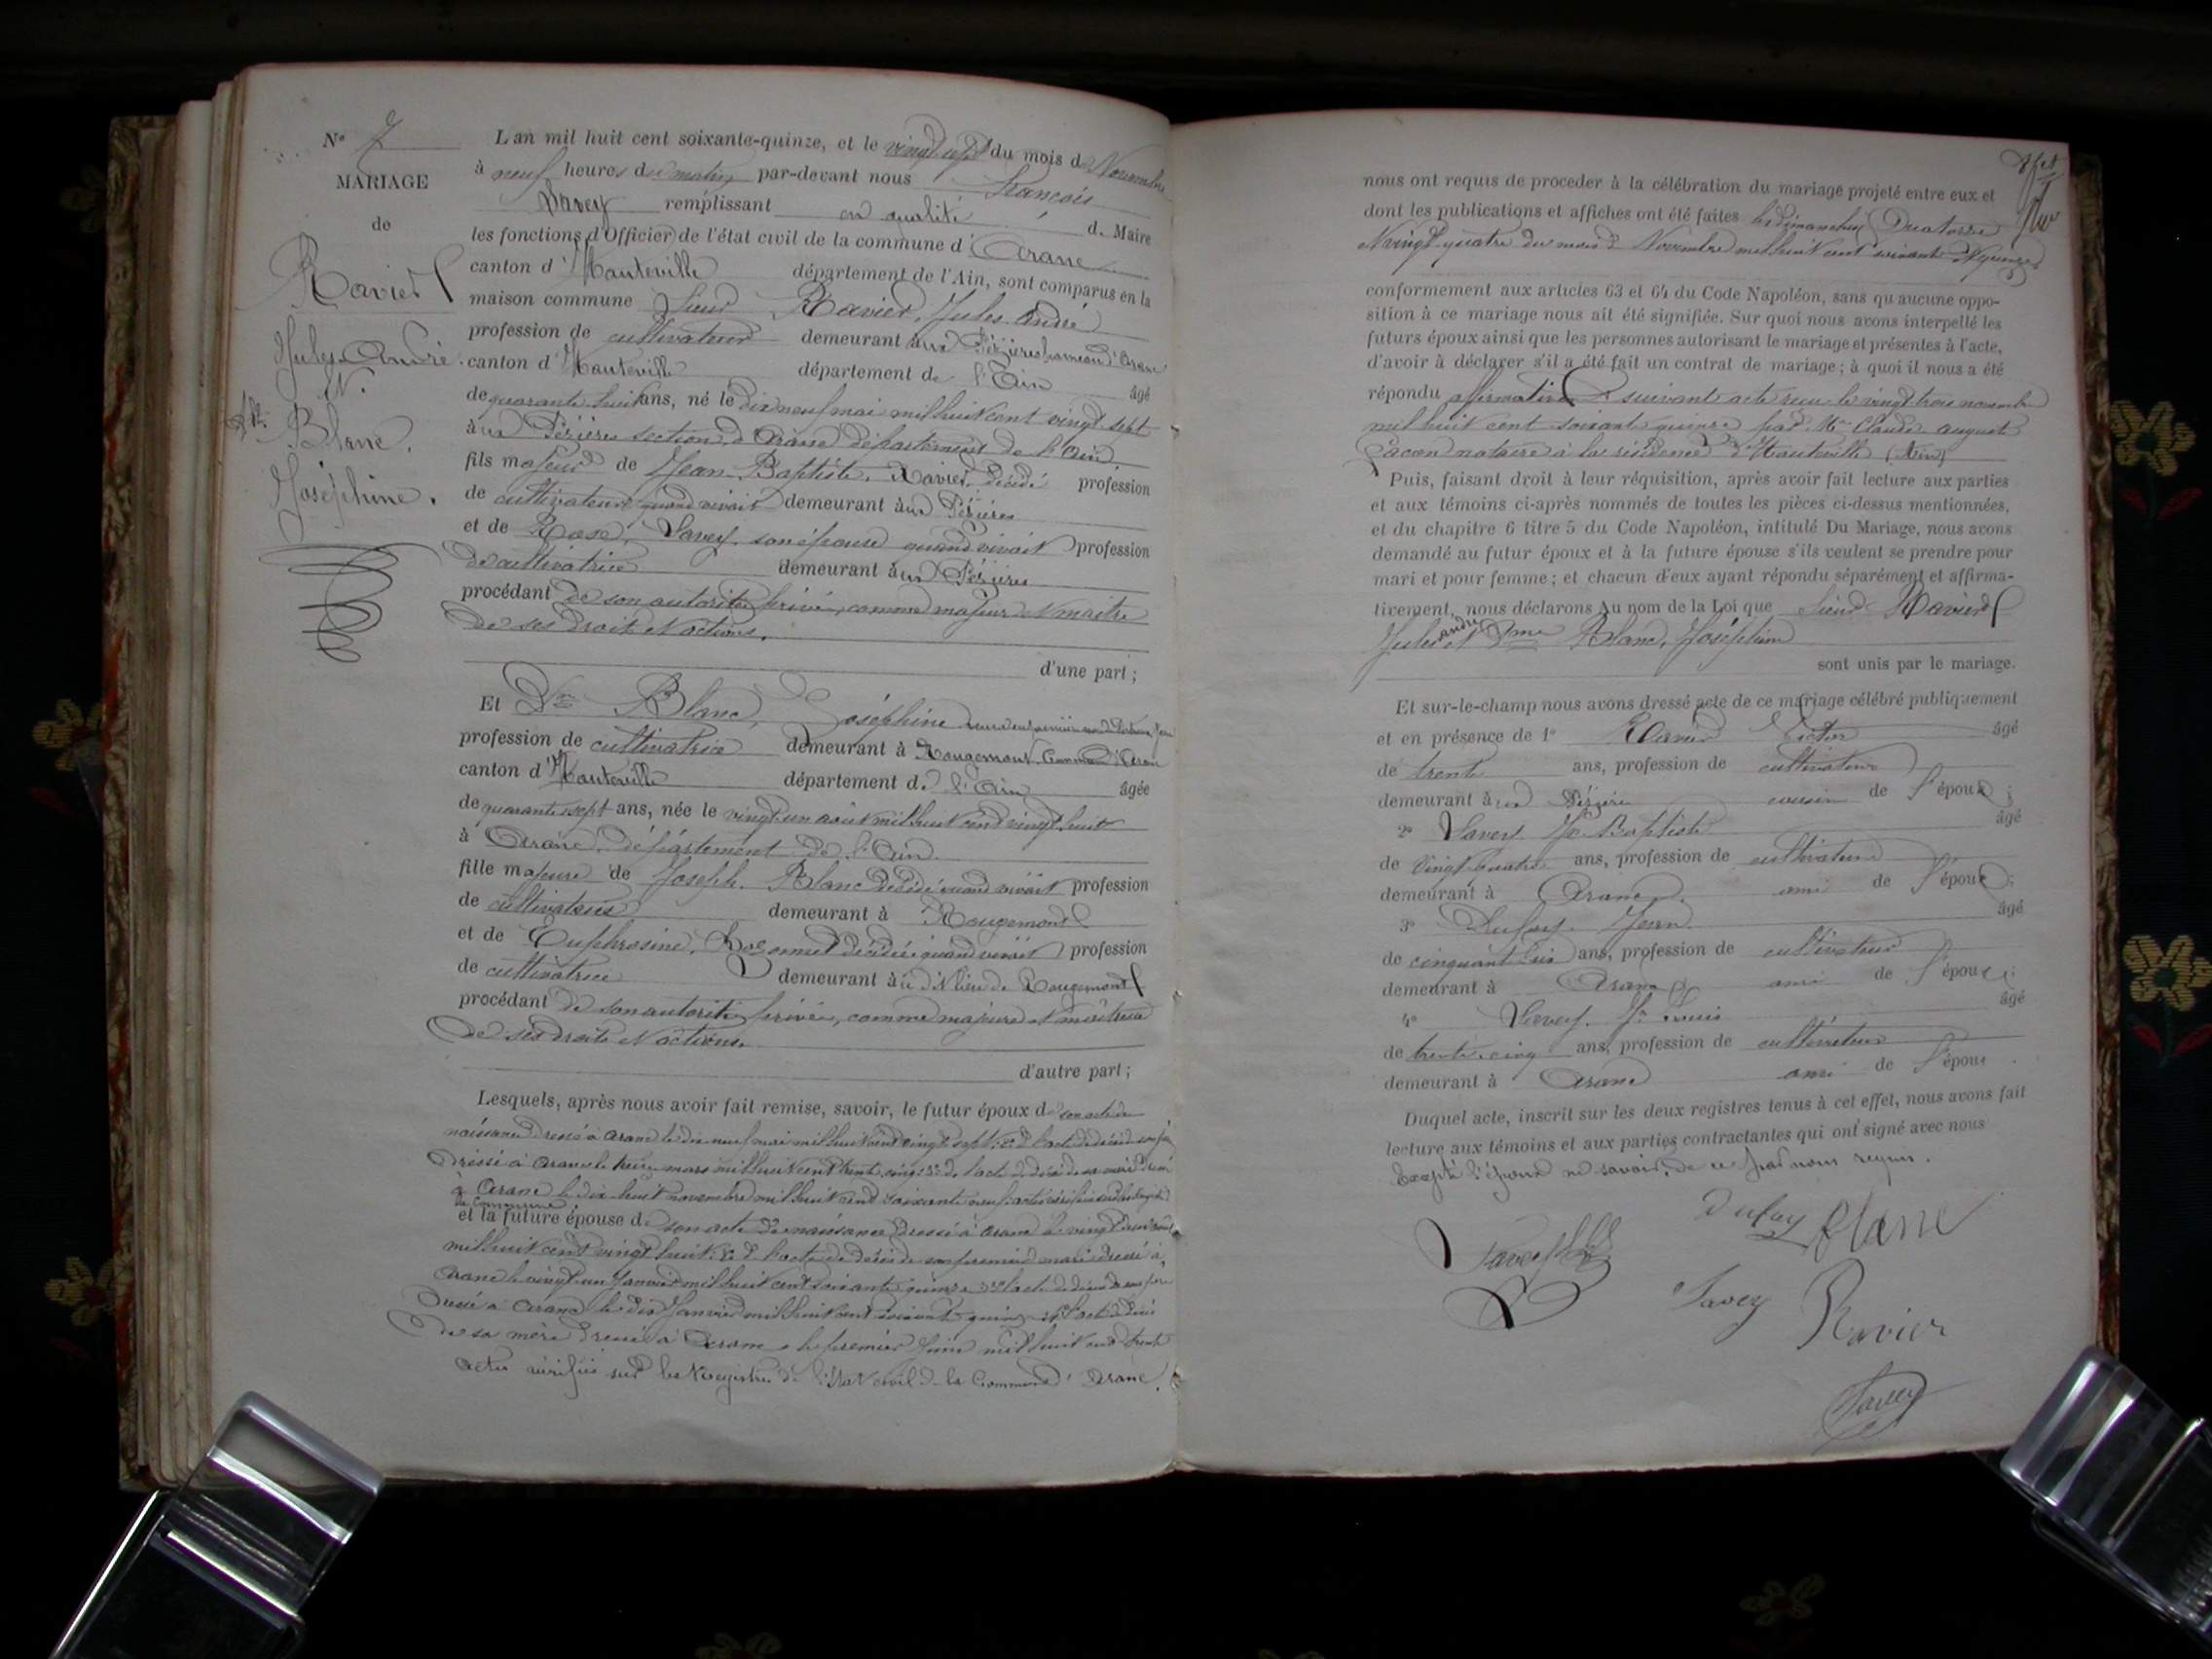 N° 7
MARIAGE
de
Ravier
Jules André
et
Blanc
Joséphine.
L'an mil huit cent soixante-quinze, et le vingt sept du mois de Novembre
à neuf heures du matin par-devant nous François
Savey remplissant en qualité de Maire
les fonctions d'Officier de l'état civil de la commune d'Aranc
canton d'Hauteville département de l'Ain, sont comparus en la
maison commune Sieur Ravier, Jules André
profession de cultivateur demeurant aux Pézières hameau d'Aranc
canton d'Hauteville département de l'Ain âgé
de quarante huit ans, né le dix neuf mai mil huit cent vingt sept
aux Pézières section d'Aranc département de l'Ain
fils majeur de Jean-Baptiste Ravier décédé profession
de cultivateur quand vivait demeurant aux Pézières
et de Rose Savey son épouse quand vivait profession
de cultivatrice demeurant aux Pézières
procédant de son autorité privée, comme majeur et maître
de ses droits et actions.
d'une part ;
Et Blanc, Joséphine veuve en premières noces
profession de cultivatrice demeurant à Rougemont Commune d'Aranc
canton d'Hauteville département de l'Ain âgée
de quarante sept ans, née le vingt un août mil huit cent vingt huit
à Aranc département de l'Ain
fille majeure de Joseph Blanc décédé quand vivait profession
de cultivateur demeurant à Rougemont
et de Euphrosine décédée quand vivait profession
de cultivatrice demeurant au dit lieu de Rougemont
procédant de son autorité privée, comme majeure et maîtresse
de ses droits et actions.
d'autre part ;
Lesquels, après nous avoir fait remise, savoir, le futur époux de son acte de
naissance dressé à Aranc le dix neuf mai mil huit cent vingt sept; 2° de l'acte de décès de son père
dressé à Aranc le treize mars mil huit cent trente cinq; 3° de l'acte de décès de sa mère dressé
à Aranc le dix huit novembre mil huit cent soixante neuf; actes vérifiés sur les registres
de la Commune
et la future épouse de son acte de naissance dressé à Aranc le vingt deux août
mil huit cent vingt huit; 2° de l'acte de décès de son premier mari dressé à
Aranc le vingt un Janvier mil huit cent soixante quinze 3° de l'acte de décès de son père
dressé à Aranc le dix Janvier mil huit cent soixante quinze 4° l'acte de décès
de sa mère dressé à Aranc le premier Juin mil huit cent trente
actes vérifiés sur les Registres de l'état civil de la Commune d'Aranc.
nous ont requis de proceder à la célébration du mariage projeté entre eux et
dont les publications et affiches ont été faites les dimanches Quatorze
et vingt quatre du mois de Novembre mil huit cent soixante et quinze
conformement aux articles 63 et 64 du Code Napoléon, sans qu'aucune oppo-
sition à ce mariage nous ait été signifiée. Sur quoi nous avons interpellé les
futurs époux ainsi que les personnes autorisant le mariage et présentes à l'acte,
d'avoir à déclarer s'il a été fait un contrat de mariage ; à quoi il nous a été
répondu affirmativement suivant acte reçu le vingt trois novembre
mil huit cent soixante quinze par Me Claude Auguste
notaire à la résidence d'Hauteville (Ain)
Puis, faisant droit à leur réquisition, après avoir fait lecture aux parties
et aux témoins ci-après nommés de toutes les pièces ci-dessus mentionnées,
et du chapitre 6 titre 5 du Code Napoléon, intitulé Du Mariage, nous avons
demandé au futur époux et à la future épouse s'ils veulent se prendre pour
mari et pour femme ; et chacun d'eux ayant répondu séparément et affirma-
tivement, nous déclarons Au nom de la Loi que Sieur Ravier
Jules André et Dme Blanc, Joséphine
sont unis par le mariage.
Et sur-le-champ nous avons dressé acte de ce mariage célébré publiquement
et en présence de 1° Ravier Victor âgé
de trente ans, profession de cultivateur
demeurant aux Pézières cousin de l'époux ;
2° Savey Jn Baptiste âgé
de vingt quatre ans, profession de cultivateur
demeurant à Aranc ami de l'époux ;
3° Dufay Jean âgé
de cinquante six ans, profession de cultivateur
demeurant à Aranc ami de l'époux ;
4° Savey Jn Louis âgé
de trente cinq ans, profession de cultivateur
demeurant à Aranc ami de l'époux
Duquel acte, inscrit sur les deux registres tenus à cet effet, nous avons fait
lecture aux témoins et aux parties contractantes qui ont signé avec nous
Excepté l'époux ne savoir, de ce par nous requis.
Dufay Blanc
Savey
Savey Ravier
Savey